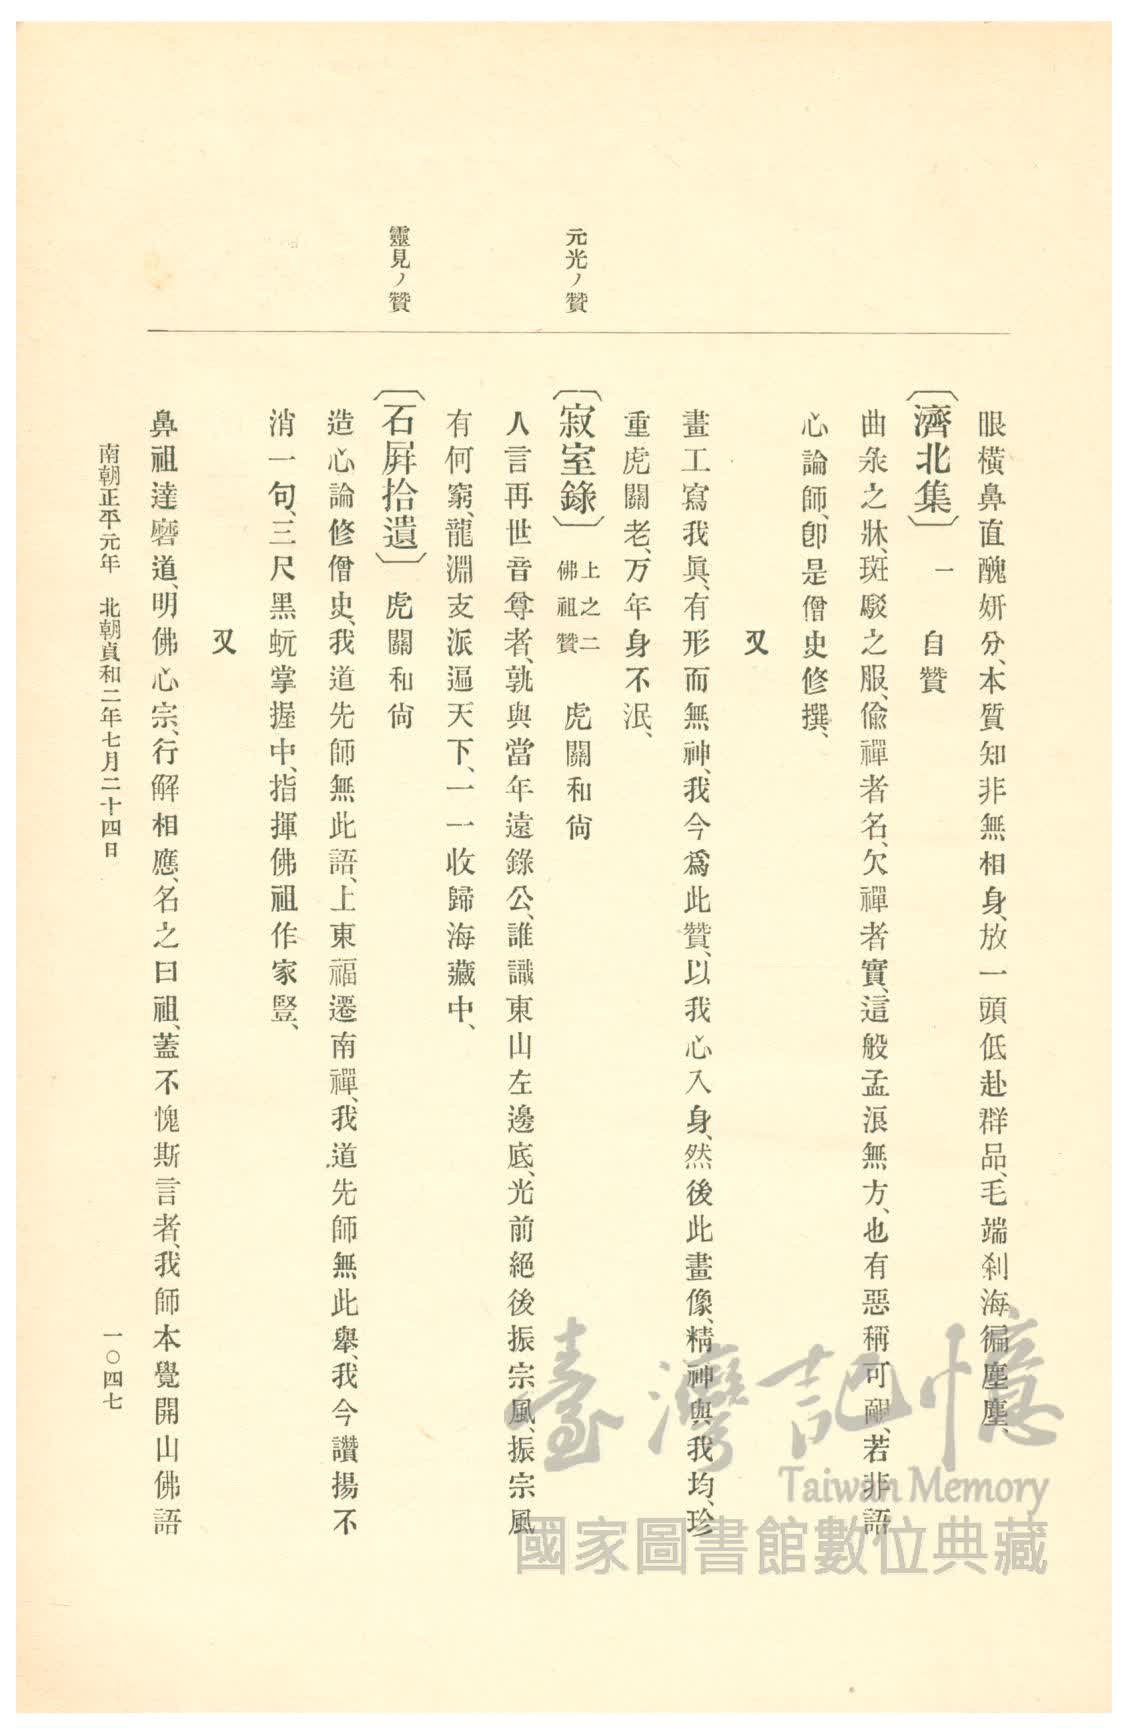 眼橫鼻直醜妍分、本質知非無相身、放一頭低赴群品、毛端刹海徧塵塵、
〔濟北集〕 一 自贊
曲彔之牀、斑駁之服、偸禪者名、欠禪者實、這般孟浪無方、也有惡稱可觀、若非語
心論師、卽是僧史修撰、
又
畫工寫我眞、有形而無神、我今爲此贊、以我心入身、然後此畫像、精神與我均、珍
重虎關老、万年身不泯、
元光ノ贊
〔寂室錄〕 上之二 佛祖贊 虎關和尙
人言再世音尊者、孰與當年遠錄公、誰識東山左邊底、光前絕後振宗風、振宗風
有何窮、龍淵支派遍天下、一一收歸海藏中、
靈見ノ贊
〔石屛拾遺〕 虎關和尙
造心論修僧史、我道先師無此語、上東福遷南禪、我道先師無此舉、我今讚揚不
消一句、三尺黑蚖掌握中、指揮佛祖作家豎、
又
鼻祖達磨道、明佛心宗、行解相應、名之曰祖、蓋不愧斯言者、我師本覺開山佛語
南朝正平元年 北朝貞和二年七月二十四日
一〇四七
臺灣記憶
Taiwan Memory
國家圖書館數位典藏